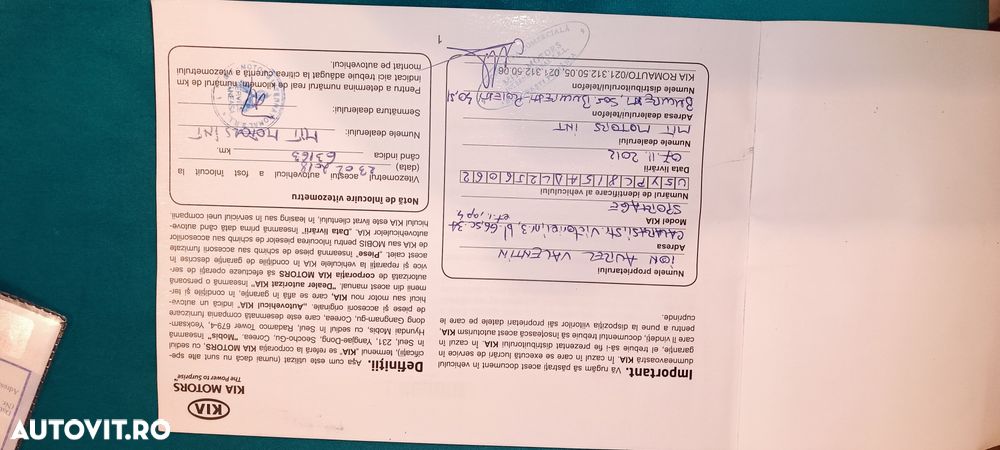 KIA MOTORS
The Power to Surprise™
Important. Vă rugăm să păstrați acest document în vehiculul
dumneavoastră KIA. În cazul în care se execută lucrări de service în
garanție, el trebuie să-i fie prezentat distribuitorului KIA. În cazul în
care îl vindeți, documentul trebuie să însoțească acest autoturism KIA,
pentru a pune la dispoziția viitorilor săi proprietari datele pe care le
cuprinde.
Numele proprietarului
ION AUREL VALENTIN
Adresa
CALARASI, str. Victoriei, nr 3, bl. G6, sc. 3A
et. 1, ap 4
Model KIA
SPORTAGE
Numărul de identificare al vehiculului
U5YPC815ADL256062
Data livrării
07.11.2012
Numele dealerului
MIT MOTORS INT
Adresa dealerului/telefon
Bucuresti, Sos Bucuresti-Ploiesti
Numele distribuitorului/telefon
KIA ROMAUTO/021.312.50.05, 021.312.50.06
1
Definiții. Așa cum este utilizat (numai dacă nu sunt alte spe-
cificații), termenul „KIA” se referă la corporația KIA MOTORS, cu sediul
în Seul, 231, Yangjae-Dong, Seocho-Gu, Corea, "Mobis" înseamnă
Hyundai Mobis, cu sediul în Seul, Radamco Tower 679-4, Yecksam-
dong Gangnam-gu, Corea, care este desemnată compania furnizoare
de piese și accesorii originale. „Autovehicul KIA” indică un autove-
hicul sau motor nou KIA, care se află în garanție, în condițiile și ter-
menii din acest manual. "Dealer autorizat KIA" înseamnă o persoană
autorizată de corporația KIA MOTORS să efectueze operații de ser-
vice și reparații la vehiculele KIA în condițiile de garanție descrise în
acest caiet. „Piese” înseamnă piese de schimb sau accesorii furnizate
de KIA sau MOBIS pentru înlocuirea pieselor de schimb sau accesoriilor
autovehiculelor KIA. „Data livrării” înseamnă prima dată când autove-
hiculul KIA este livrat clientului, în leasing sau în serviciul unei companii.
Notă de înlocuire vitezometru
Vitezometrul acestui autovehicul a fost înlocuit la
(data) 23 02 2018
când indica 63163 km.
Numele dealerului: MIT MOTORS INT
Semnătura dealerului:
Pentru a determina numărul real de kilometri, numărul de km
indicat aici trebuie adăugat la citirea curentă a vitezometrului
montat pe autovehicul.
AUTOVIT.RO